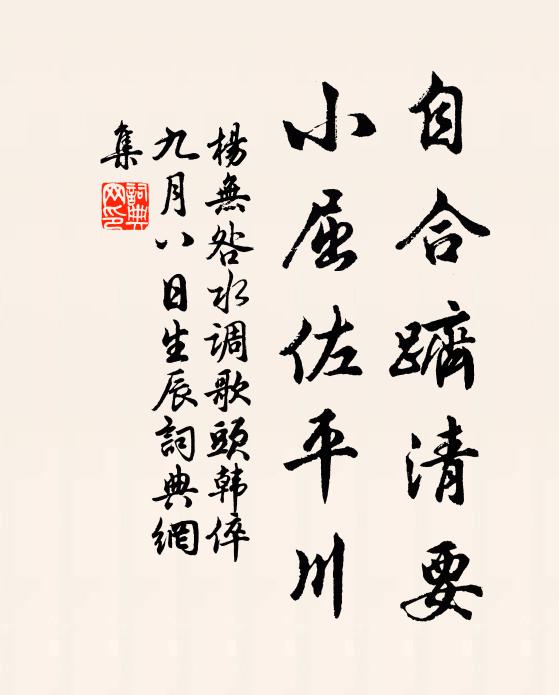 自合躋清要
小屈佐平川
楊無咎水调歌頭韩倅
九月八日生辰詞典網
集
詞典
網印